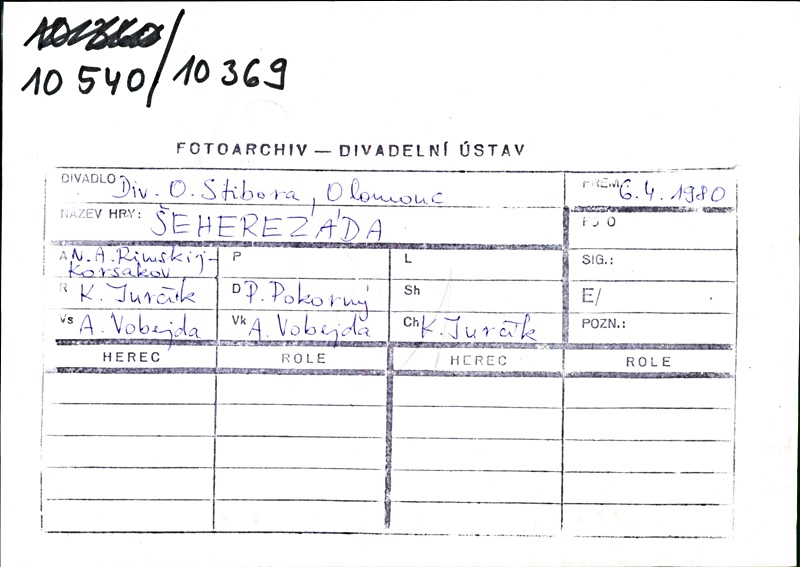 10 540/10 369
FOTOARCHIV — DIVADELNÍ ÚSTAV
DIVADLO Div. O. Stibora, Olomouc
PREM. 6.4.1980
NÁZEV HRY: ŠEHEREZÁDA
FOTO
A N. A. Rimskij-
Korsakov
P
L
SIG.:
R K. Jurčík
D P. Pokorný
Sh
E/
Vs A. Vobejda
Vk A. Vobejda
Ch K. Jurčík
POZN.:
HEREC ROLE HEREC ROLE